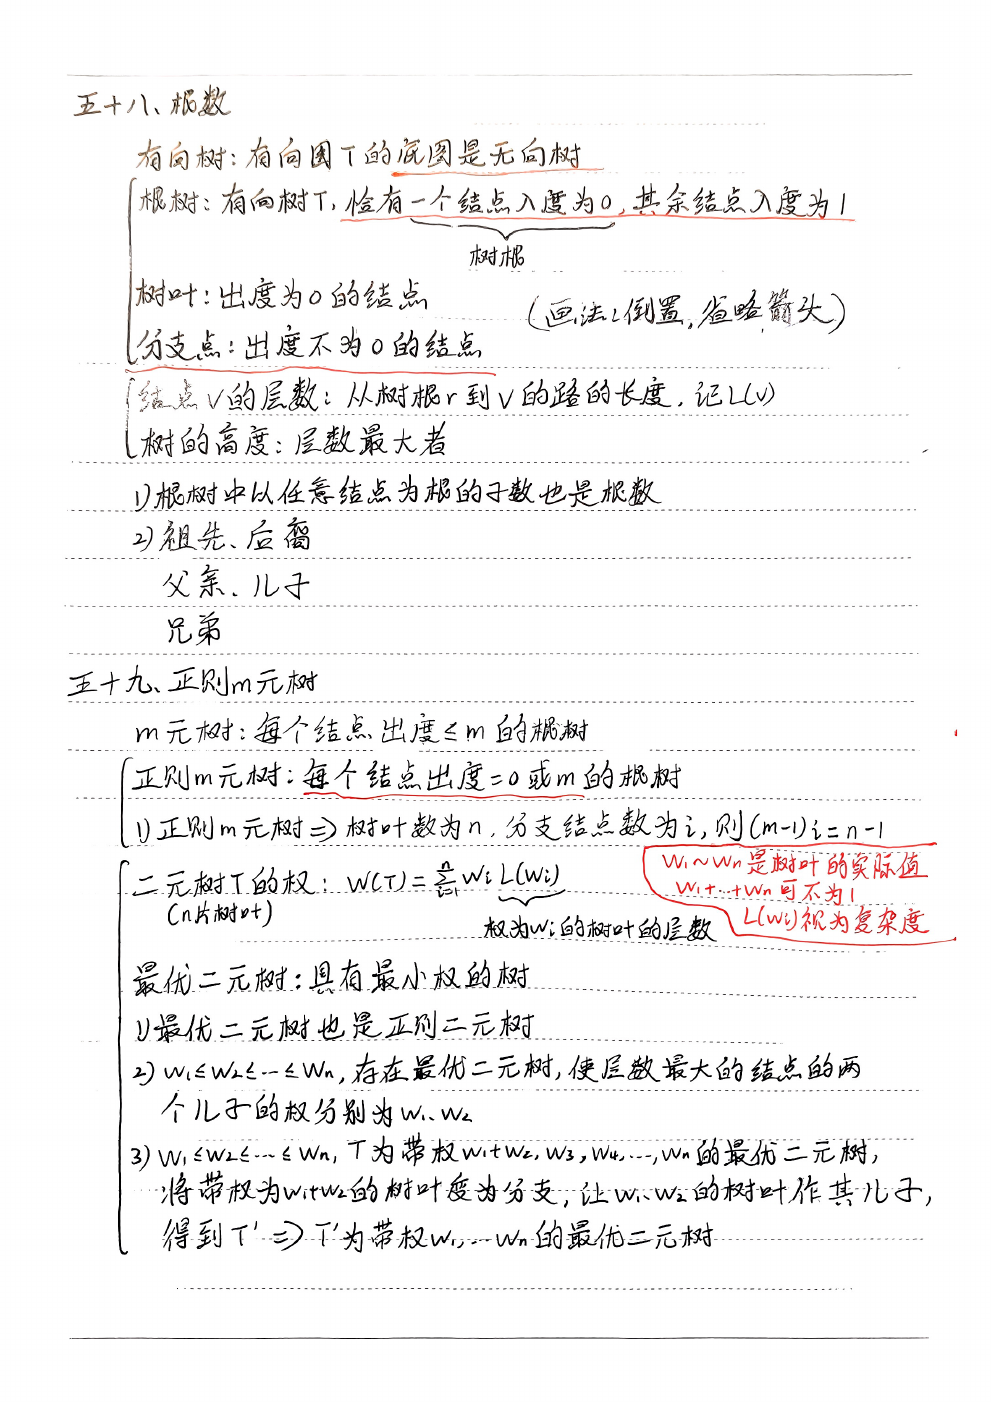 五十八、根数
有向树：有向图T的底图是无向树
根树：有向树T，恰有一个结点入度为0，其余结点入度为1
树根
树叶：出度为0的结点
(画法：倒置，省略箭头)
分支点：出度不为0的结点
结点V的层数：从树根r到V的路的长度，记L(V)
树的高度：层数最大者
1) 根树中以任意结点为根的子数也是根数
2) 祖先、后裔
父亲、儿子
兄弟
五十九、正则m元树
m元树：每个结点出度≤m的根树
正则m元树：每个结点出度=0或m的根树
1) 正则m元树⇒树叶数为n，分支结点数为i，则(m-1)i=n-1
W₁~Wn是树叶的实际值
W₁+…+Wn可不为1
L(Wi)视为复杂度
二元树T的权：W(T)=∑ⁿᵢ₌₁ Wi L(Wi)
(n片树叶)
权为Wi的树叶的层数
最优二元树：具有最小权的树
1) 最优二元树也是正则二元树
2) W₁≤W₂≤…≤Wn，存在最优二元树，使层数最大的结点的两
个儿子的权分别为W₁、W₂
3) W₁≤W₂≤…≤Wn，T为带权W₁+W₂，W₃，W₄，…，Wn的最优二元树，
将带权为W₁+W₂的树叶度为分支，让W₁、W₂的树叶作其儿子，
得到T'⇒T'为带权W₁，…Wn的最优二元树